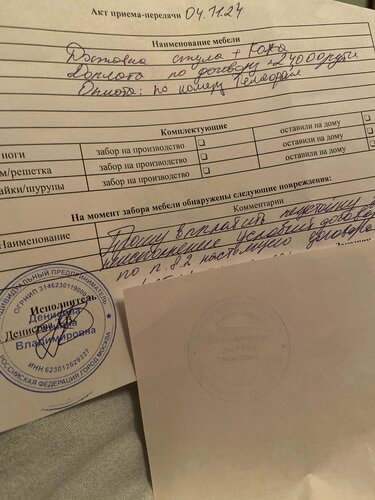 Акт приема-передачи 04.11.24
Наименование мебели
Доставка стула +
Доплата по договору 24000 рубл
Оплата: по номеру телефона
Комплектующие
ноги забор на производство оставили на дому
м/решетка забор на производство оставили на дому
айки/шурупы забор на производство оставили на дому
На момент забора мебели обнаружены следующие повреждения:
Наименование Комментарии
Прошу выплатить неустойку
условий договора
по п. 8.2 настоящего договора
Исполнитель
Денисова
ИНДИВИДУАЛЬНЫЙ ПРЕДПРИНИМАТЕЛЬ
ОГРНИП
Денисова
Владимировна
ИНН 623012629327
РОССИЙСКАЯ ФЕДЕРАЦИЯ ГОРОД МОСКВА